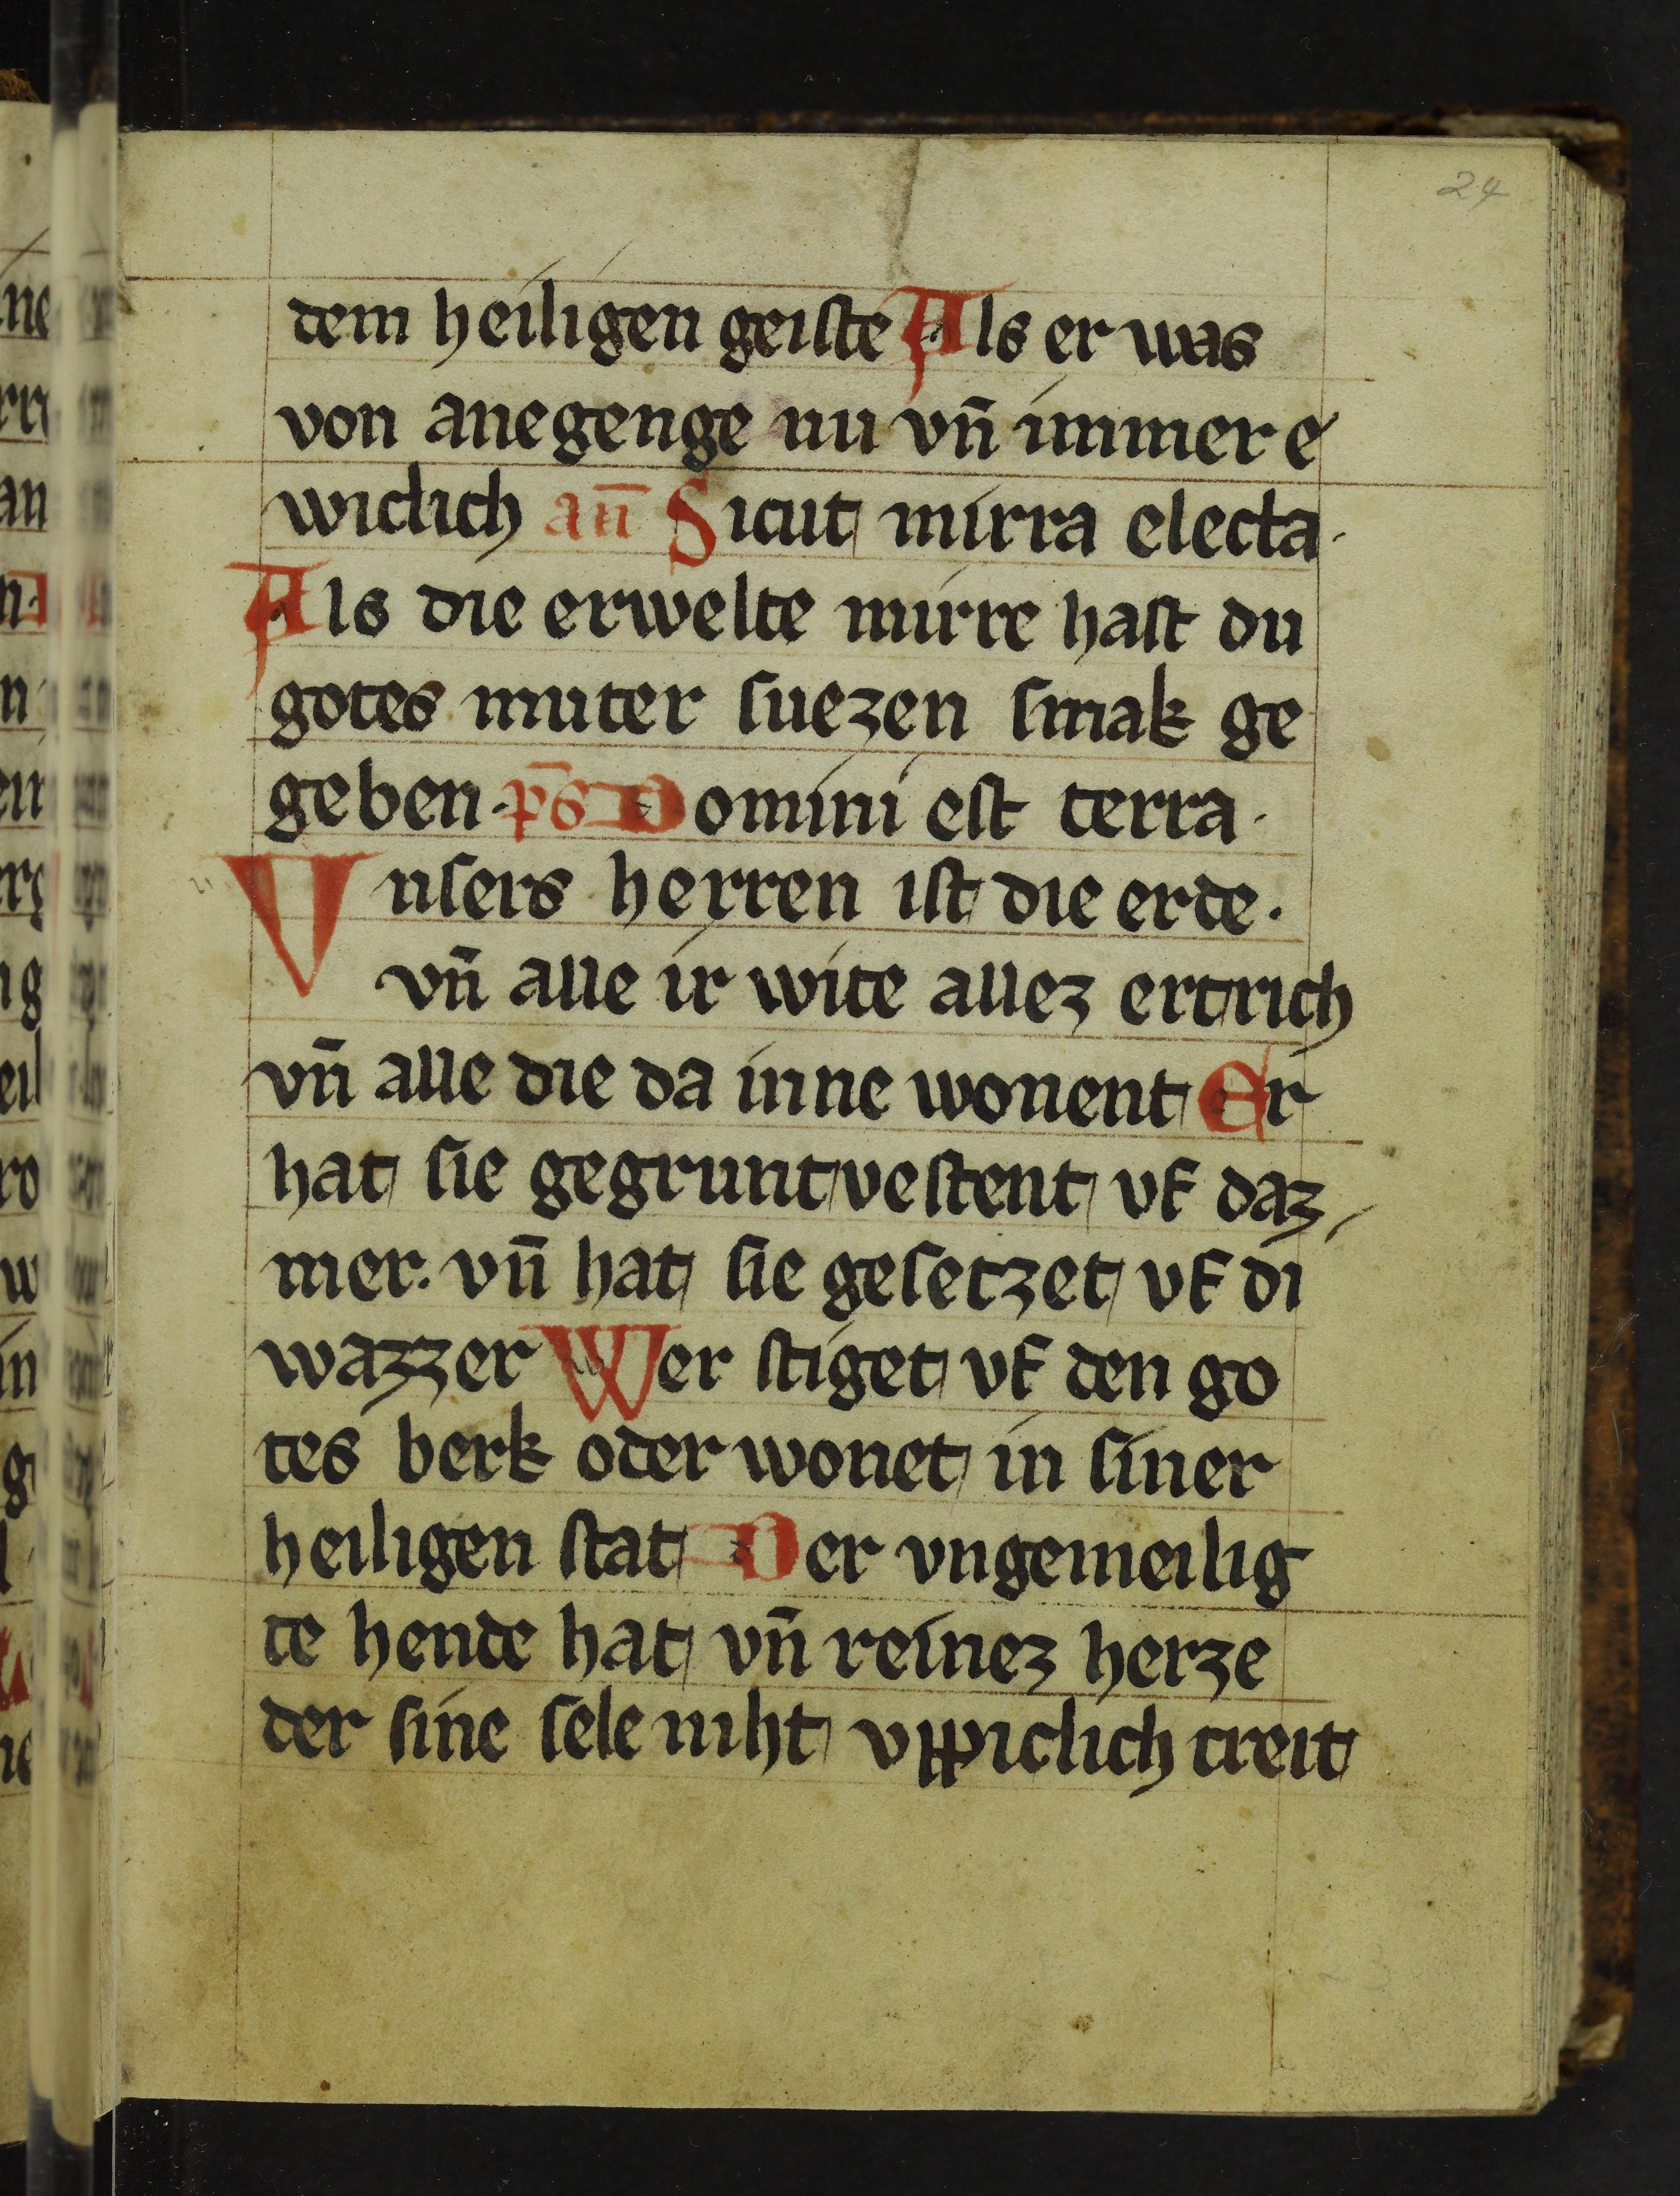 24
dem heiligen geiste Als er was
von anegenge nu vn̄ immer e
wiclich an̄ Sicut mirra electa.
Als die erwelte mirre hast du
gotes muter suezen smak ge
geben. p̄s Domini est terra.
Vnsers herren ist die erde.
vn̄ alle ir wite allez ertrich
vn̄ alle die da inne wonent Er
hat sie gegruntvestent vf daz
mer. vn̄ hat sie gesetzet vf di
wazzer Wer stiget vf den go
tes berk oder wonet in siner
heiligen stat Der vngemeilig
te hende hat vn̄ reinez herze
der sine sele niht vppiclich treit